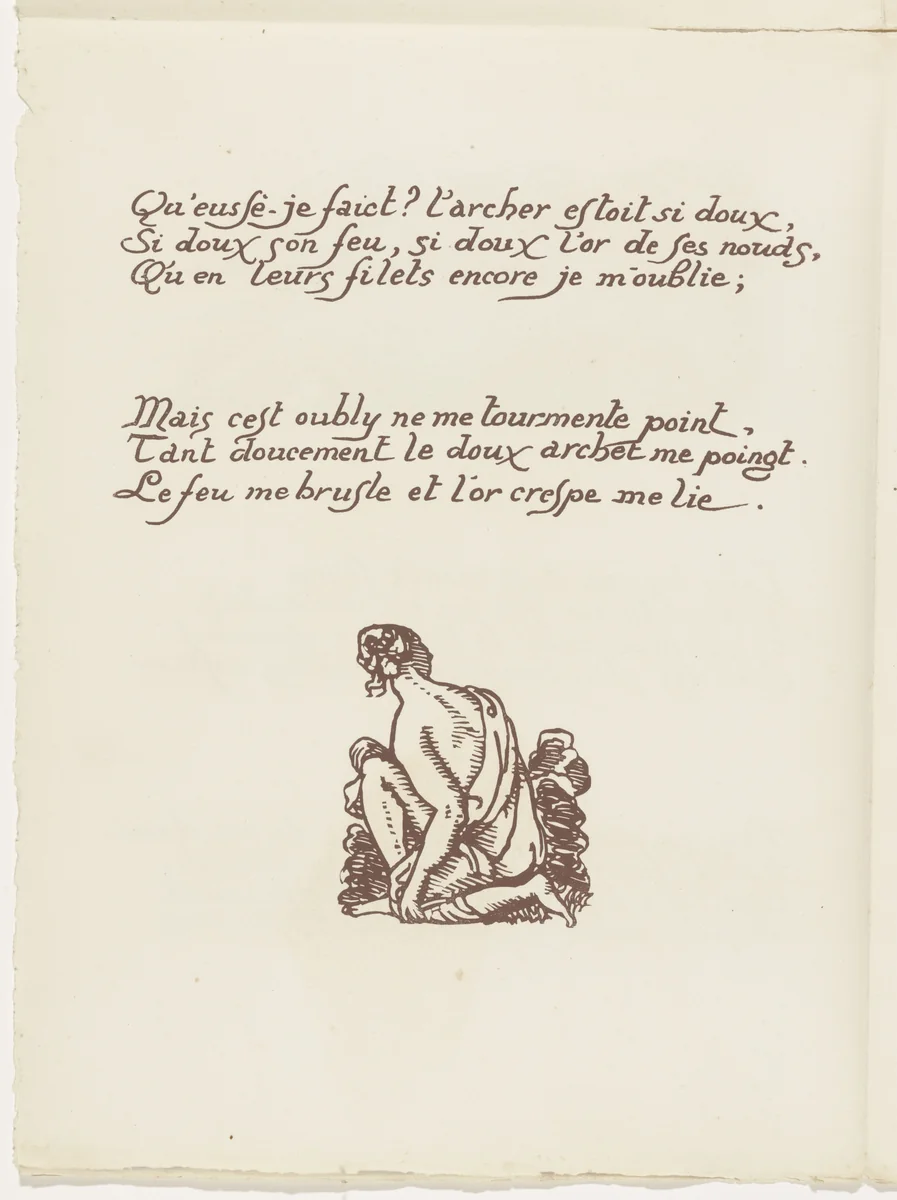 Qu'eussè-je faict? l'archer estoit si doux,
Si doux son feu, si doux l'or de ses nouds,
Qu'en leurs filets encore je m'oublie;
Mais cest oubly ne me tourmente point,
Tant doucement le doux archet me poingt.
Le feu me brusle et l'or crespe me lie.